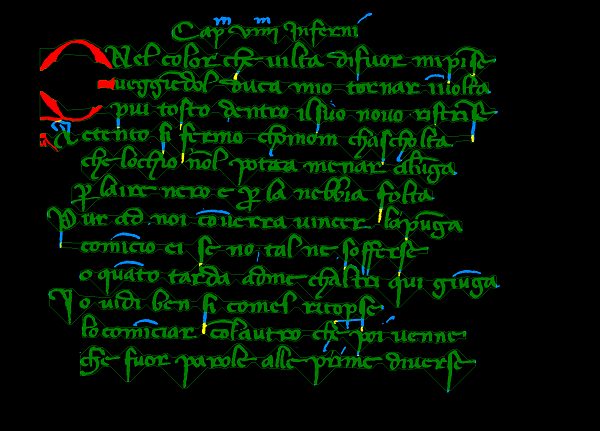 Cap viiii Inferni
Quel color che uilta difuor mi pise
ueggiedol duca mio tornar iuolta
piu tosto dentro il suo nouo ristrise
Attento si fermo chomom chascholta
che lochio nol potea menar aluga
p laire nero e p la nebbia folta
Pur ad noi couerra uincer la puga
comicio ei se no tal ne sofferse
o quato tarda adme chaltri qui giuga
Io uidi ben si comei ricopse
lo comiciar col autro che poi uenne
che fuor parole alle prime diuerse